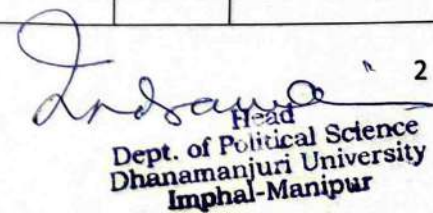 2
Head
Dept. of Political Science
Dhanamanjuri University
Imphal-Manipur